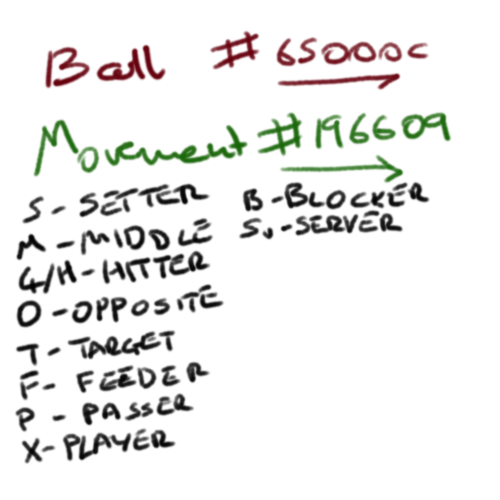 Ball #65000c
Movement #196609
S - SETTER
M - MIDDLE
4/H - HITTER
O - OPPOSITE
T - TARGET
F - FEEDER
P - PASSER
X - PLAYER
B - BLOCKER
Sv - SERVER